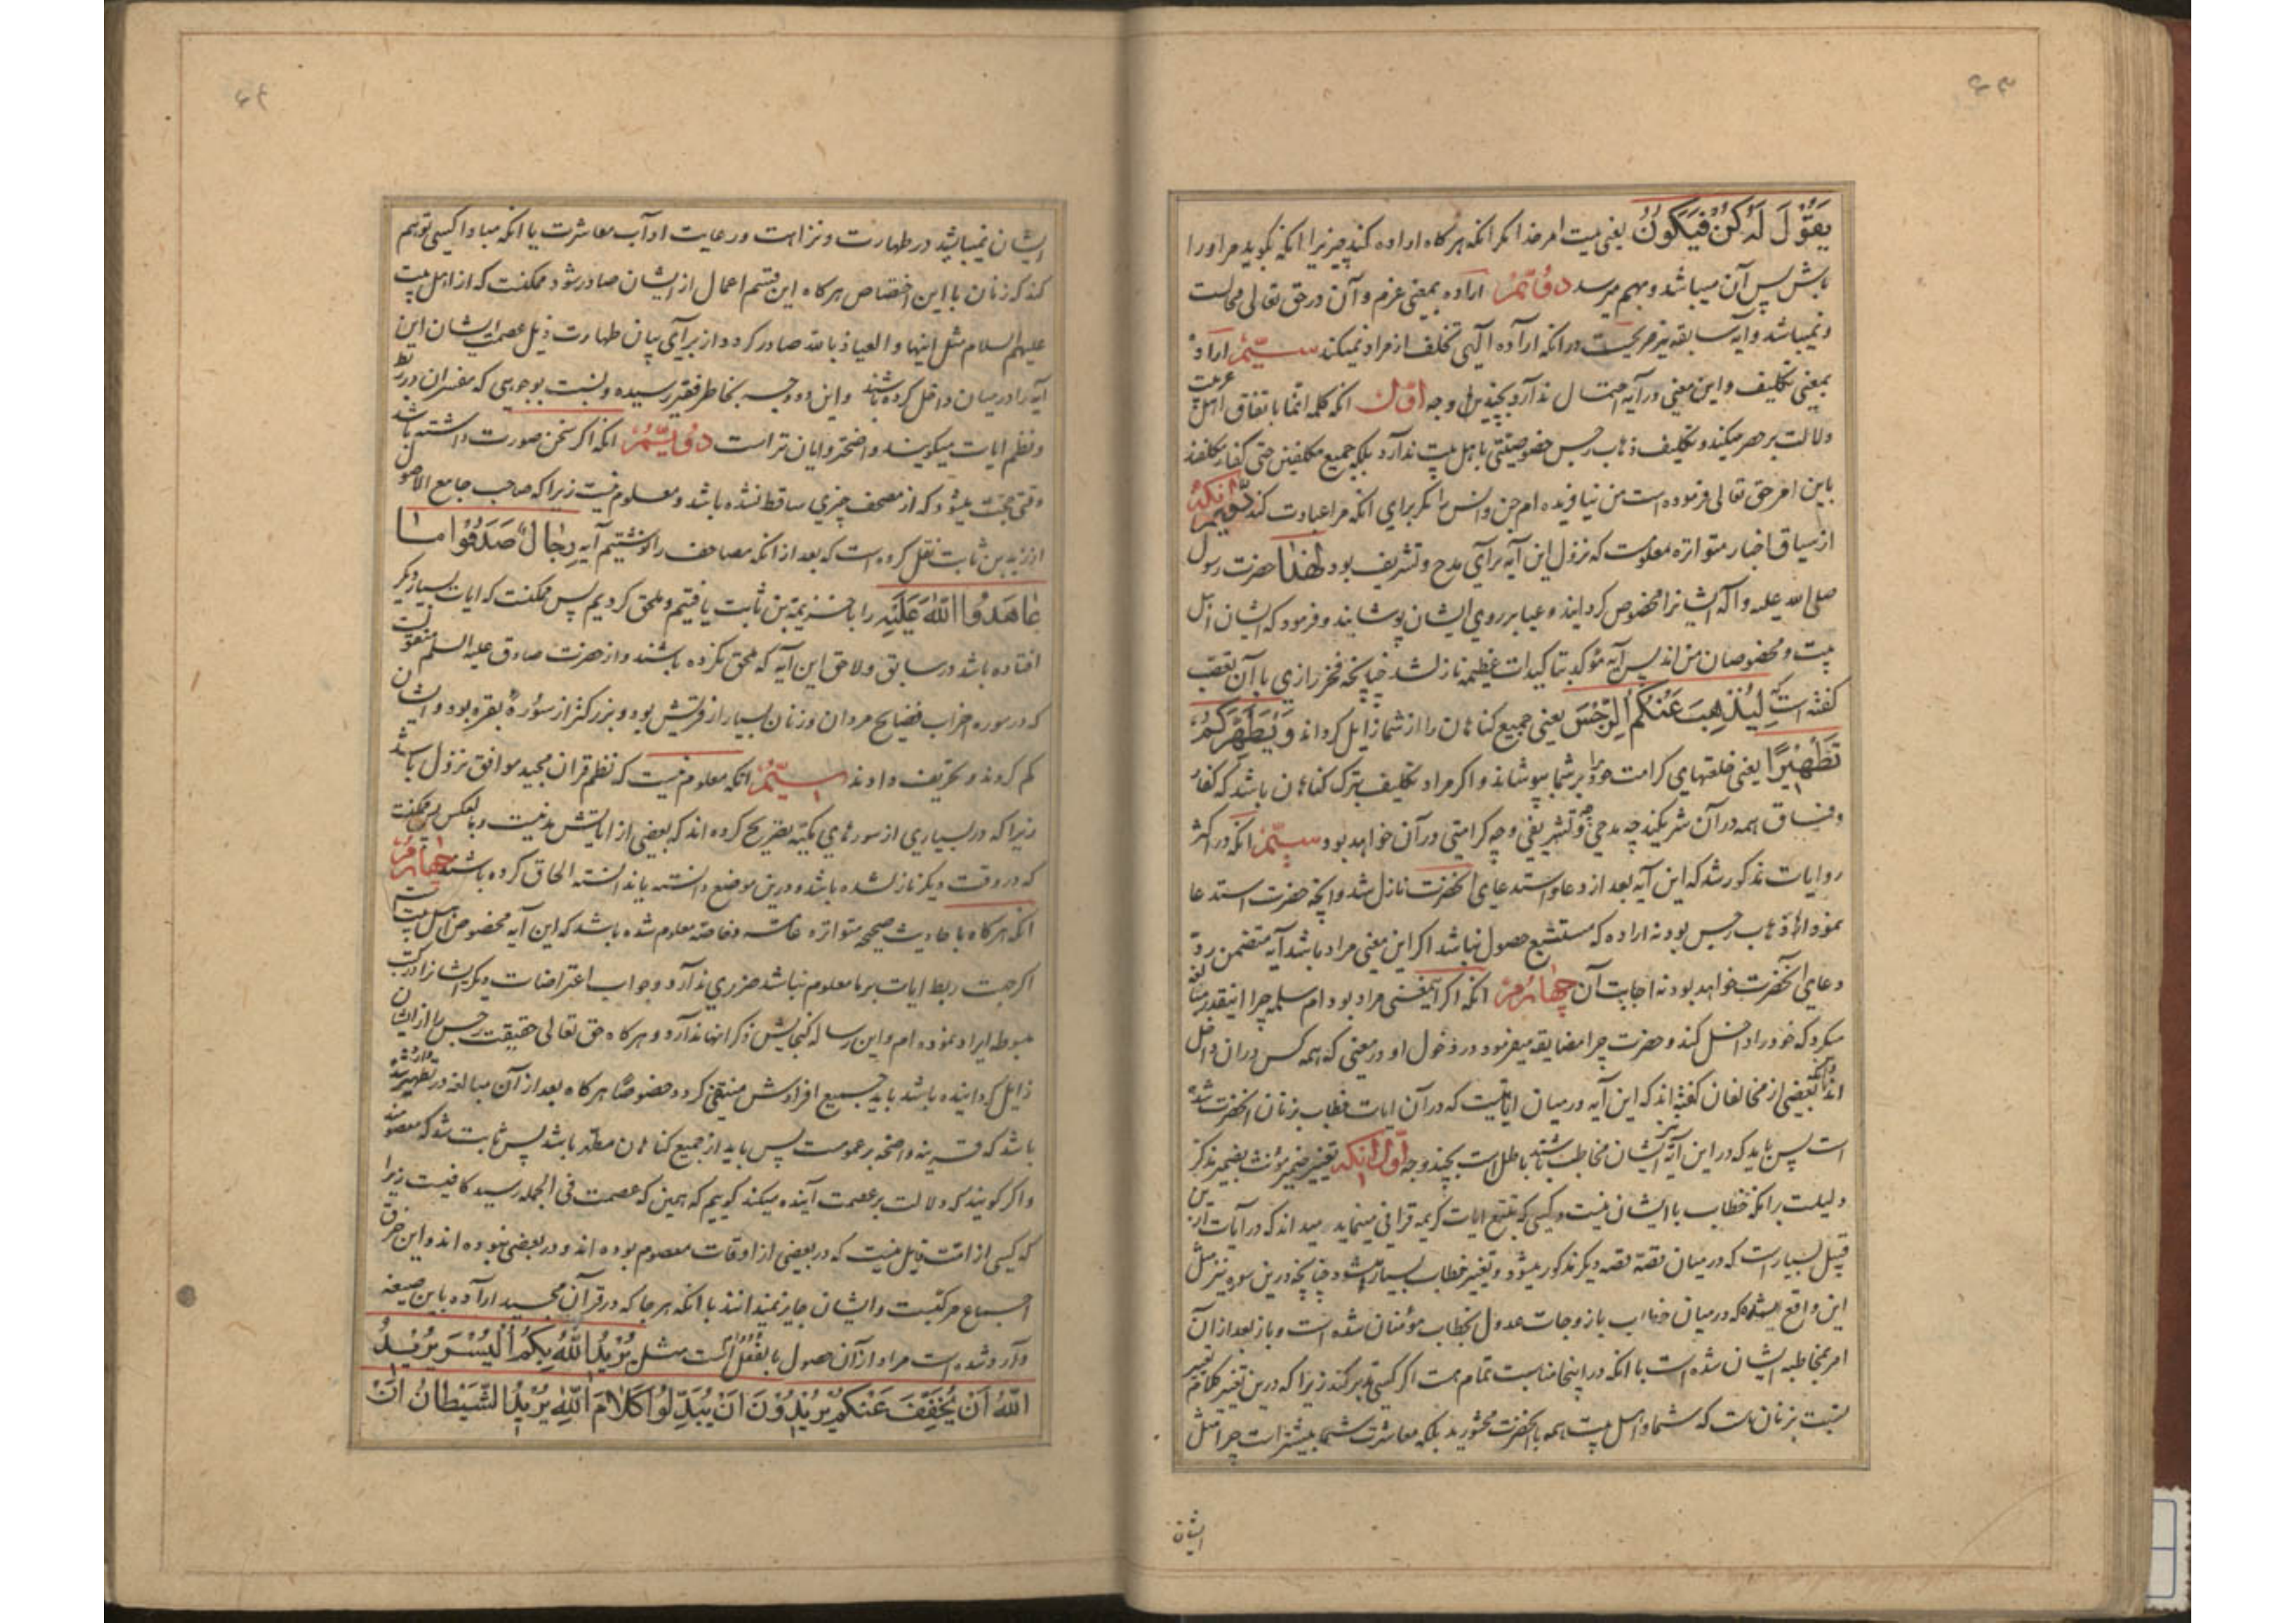 یَقُوْلَ لَهُ کُنْ فَیَکُوْنُ یعنی نیست امر خدا مگر انکه هرگاه اراده کند چیزیرا انکه بگوید مر او را
باش پس آن میباشد و بهم میرسد دوّم اراده بمعنی عزم و آن در حق تعالی محالست
و نمیباشد و آیه سابقه نیز صریحست در انکه اراده الهی تخلف از مراد نمیکند سیّم اراده
بمعنی تکلیف و این معنی در آیه احتمال ندارد بچندین وجه اوّل انکه کلمه انما باتفاق اهل عربیت
دلالت بر حصر میکند و تکلیف ذهاب رجس خصوصیتی باهل بیت ندارد بلکه جمیع مکلفین حتی کفار مکلفند
باین امر حق تعالی فرموده است من نیافریده ام جن و انس را مگر برای انکه مرا عبادت کنند دوّیم انکه
از سیاق اخبار متواتره معلومست که نزول این آیه برای مدح و تشریف بود لهذا حضرت رسول
صلی الله علیه و آله ایشانرا مخصوص گردانید و عبا بر روی ایشان پوشانید و فرمود که ایشان اهل
بیت و مخصوصان من اند پس آیه مؤکد بتاکیدات عظیمه نازل شد چنانچه فخر رازی با آن تعصب
گفته است که لِیُذْهِبَ عَنْکُمُ الرِّجْسَ یعنی جمیع گناهان را از شما زایل گرداند وَیُطَهِّرَکُمْ
تَطْهِیْرًا یعنی خلعتهای کرامت خود را بر شما بپوشاند و اگر مراد تکلیف بترک گناهان باشد که کفار
و فساق همه در آن شریکند چه مدحی و چه تشریفی و چه کرامتی در آن خواهد بود سیّم انکه در اکثر
روایات مذکور شد که این آیه بعد از دعا و استدعای آنحضرت نازل شد و آنچه حضرت استدعا
نمود اذهاب رجس بود نه اراده که مستتبع حصول نباشد اگر این معنی مراد باشد آیه متضمن رد
دعای آنحضرت خواهد بود نه اجابت آن چهارم انکه اگر این معنی مراد بود ام سلمه چرا اینقدر مبالغه
میکرد که خود را داخل کند و حضرت چرا مضایقه میفرمود در دخول او در معنی که همه کس در ان داخل
اند و انکه بعضی از مخالفان گفته اند که این آیه در میان ایاتیست که در آن ایات خطاب بزنان آنحضرت شده
است پس باید که در این آیه نیز ایشان مخاطب باشند باطل است بچند وجه اوّل انکه تغییر ضمیر مؤنث بضمیر مذکر
دلیلست بر انکه خطاب با ایشان نیست و کسی که تتبع ایات کریمه قرانی مینماید میداند که در آیات ازین
قبیل بسیار است که در میان قصه قصه دیگر مذکور میشود و تغییر خطاب بسیار میشود چنانچه درین سوره نیز مثل
این واقع شده که در میان خطاب با زوجات عدول بخطاب مؤمنان شده است و باز بعد از آن
امر بمخاطبه ایشان شده است با انکه در اینجا مناسبت تمام هست اگر کسی تدبر کند زیرا که درین تغییر کلام تعییر
نسبت بزنان است که شما و اهل بیت همه با آنحضرت محشورید بلکه معاشرت شما بیشتر است چرا مثل
ایشان
ایشان نمیباشید در طهارت و نزاهت و رعایت اداب معاشرت یا انکه مبادا کسی توهم
کند که زنان با این اختصاص هرگاه این قسم اعمال از ایشان صادر شود ممکنست که از اهل بیت
علیهم السلام مثل اینها و العیاذ بالله صادر گردد از برای بیان طهارت ذیل عصمت ایشان این
آیه را در میان داخل کرده باشند و این دو وجه بخاطر فقیر رسیده و نسبت بوجوهی که مفسران در ربط
و نظم ایات میگویند واضحتر و ایان تر است دویّم انکه اگر سخن صورت داشته باشد
وقتی حجت میشود که از مصحف چیزی ساقط نشده باشد و معلوم نیست زیرا که صاحب جامع الاصول
از زید بن ثابت نقل کرده است که بعد از انکه مصاحف را نوشتیم آیه رِجَالٌ صَدَقُوْا مَا
عَاهَدُوا اللّٰهَ عَلَیْهِ را با خزیمة بن ثابت یافتیم و ملحق کردیم پس ممکنست که ایات بسیار دیگر
افتاده باشد در سابق و لاحق این آیه که ملحق نکرده باشند و از حضرت صادق علیه السلم منقولست
که در سوره احزاب فضایح مردان و زنان بسیار از قریش بود و بزرگتر از سورهٔ بقره بود و ایشان
کم کردند و تحریف دادند سیّم انکه معلوم نیست که نظم قران مجید موافق نزول باشد
زیرا که در بسیاری از سورهای مکیّه تصریح کرده اند که بعضی از ایاتش مدنیست و بالعکس پس ممکنست
که در وقت دیگر نازل شده باشد و درین موضع دانسته یا ندانسته الحاق کرده باشند چهارم
انکه هرگاه باحادیث صحیحه متواتره عامه و خاصه معلوم شده باشد که این آیه مخصوص اهل بیت است
اگر جهت ربط ایات بر ما معلوم نباشد ضرری ندارد و جواب اعتراضات دیگر ایشانرا در کتب
مبسوط ایراد نموده ام و این رساله گنجایش ذکر انها ندارد و هرگاه حق تعالی حقیقت رجس را از ایشان
زایل گردانیده باشد باید جمیع افرادش منتفی گردد خصوصًا هرگاه بعد از آن مبالغه در تطهیر وارد شده
باشد که قرینه واضحه بر عمومست پس باید از جمیع گناهان مطهر باشند پس ثابت شد که معصومند
و اگر گویند که دلالت بر عصمت آینده میکند گوییم که همین که عصمت فی الجمله رسید کافیست زیرا
که کسی از امت قایل نیست که در بعضی از اوقات معصوم بوده اند و در بعضی نبوده اند و این خرق
اجماع مرکبست و ایشان جایز نمیدانند با انکه هر جا که در قرآن مجید اراده باین صیغه
وارد شده است مراد از آن حصول بالفعل است مثل یُرِیْدُ اللّٰهُ بِکُمُ الْیُسْرَ یُرِیْدُ
اللّٰهُ اَنْ یُخَفِّفَ عَنْکُمْ یُرِیْدُوْنَ اَنْ یُبَدِّلُوْا کَلَامَ اللّٰهِ یُرِیْدُ الشَّیْطَانُ اَنْ